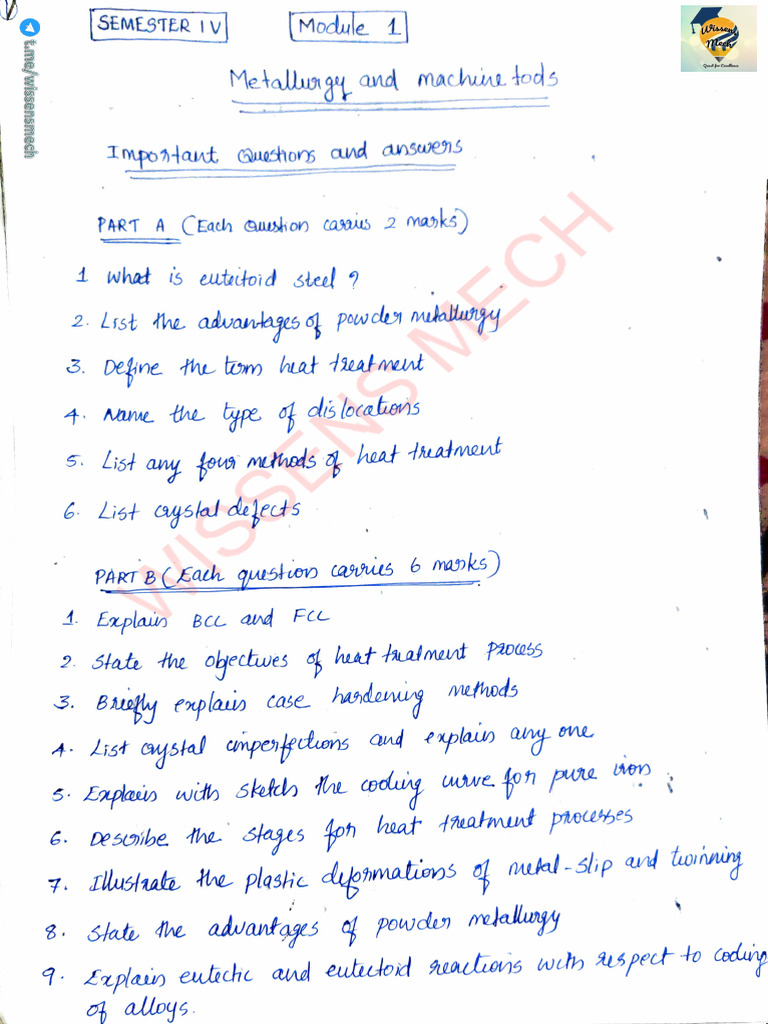 SEMESTER IV
Module 1
Wissens
Mech
Quest for Excellence
t.me/wissensmech
Metallurgy and machine tools
Important Questions and answers
PART A (Each Question carries 2 marks)
1 What is eutectoid steel ?
2. List the advantages of powder metallurgy
3. Define the term heat treatment
4. Name the type of dislocations
5. List any four methods of heat treatment
6. List crystal defects
WISSENS MECH
PART B (Each question carries 6 marks)
1. Explain BCC and FCC
2. State the objectives of heat treatment process
3. Briefly explain case hardening methods
4. List crystal imperfections and explain any one
5. Explain with sketch the cooling curve for pure iron
6. Describe the stages for heat treatment processes
7. Illustrate the plastic deformations of metal - slip and twinning
8. State the advantages of powder metallurgy
9. Explain eutectic and eutectoid reactions with respect to cooling
of alloys.